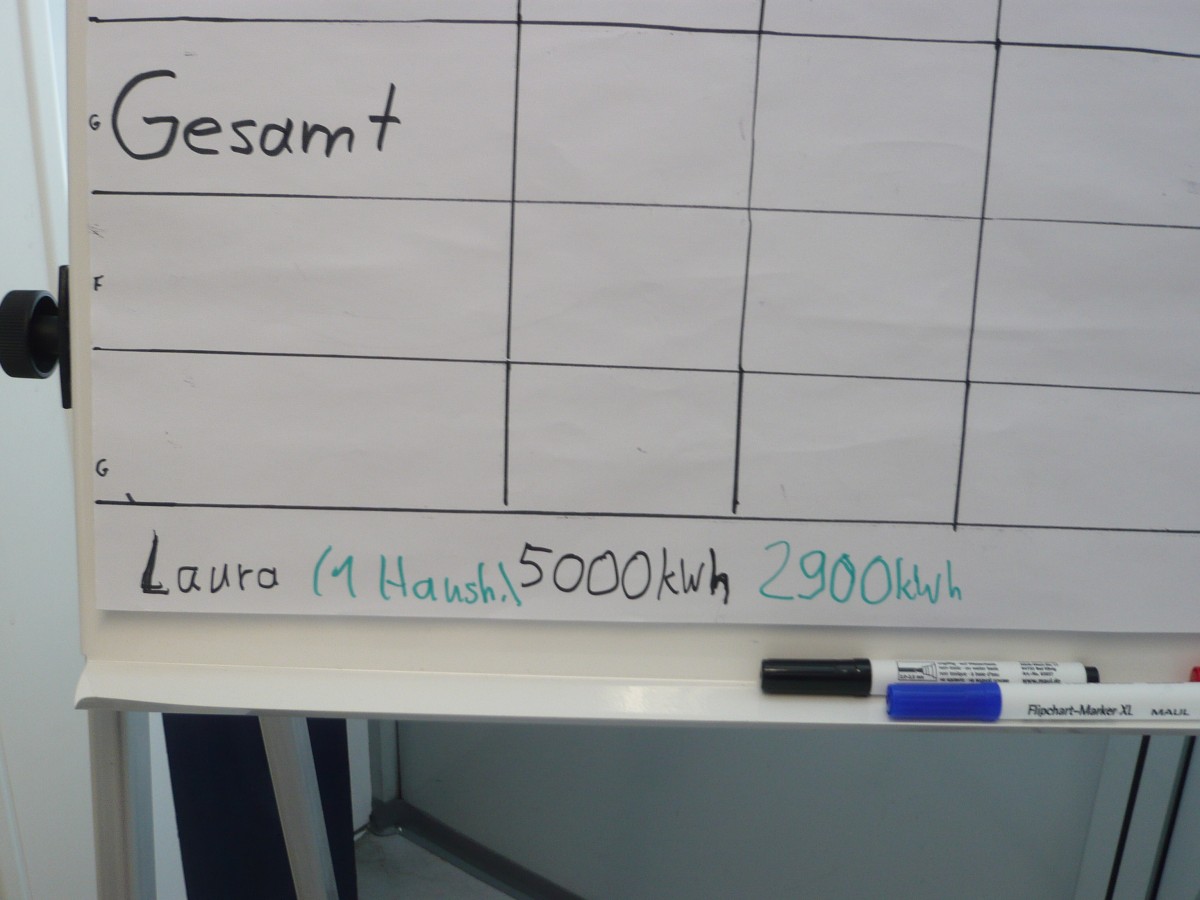 G Gesamt
F
G
Laura (1 Haush.) 5000kwh 2900kwh
www.maul.de
Flipchart-Marker XL MAUL